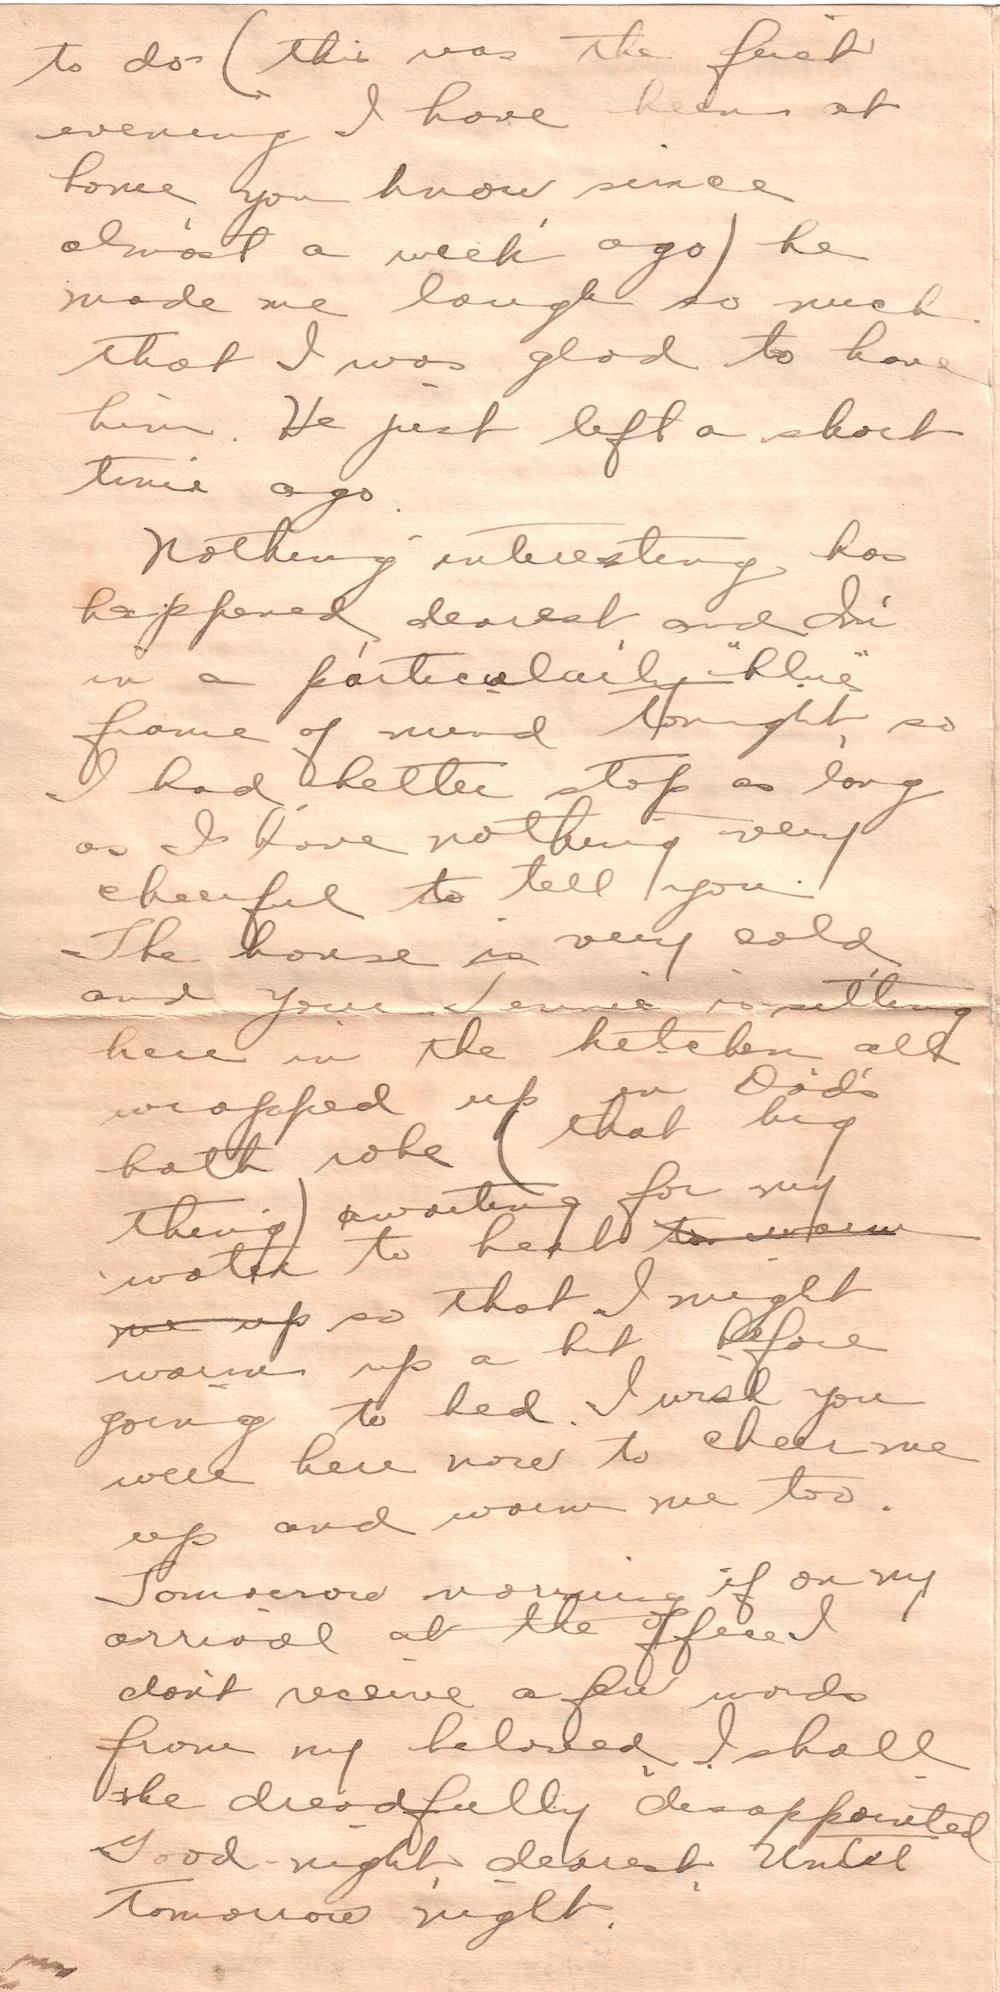 to do (this was the first
evening I have been at
home you know since
almost a week ago) he
made me laugh so much
that I was glad to have
him. He just left a short
time ago.
Nothing interesting has
happened, dearest, and I'm
in a particularly "blue"
frame of mind tonight, so
I had better stop as long
as I have nothing very
cheerful to tell you.
The house is very cold
and your Jennie is sitting
here in the kitchen all
wrapped up in Dad's
bath robe (that big
thing) awaiting for my
water to heat to warm
me up so that I might
warm up a bit before
going to bed. I wish you
were here now to cheer me
up and warm me too.
Tomorrow morning if on my
arrival at the office I
don't receive a few words
from my beloved, I shall
be dreadfully disappointed
Good-night, dearest, Until
tomorrow night.